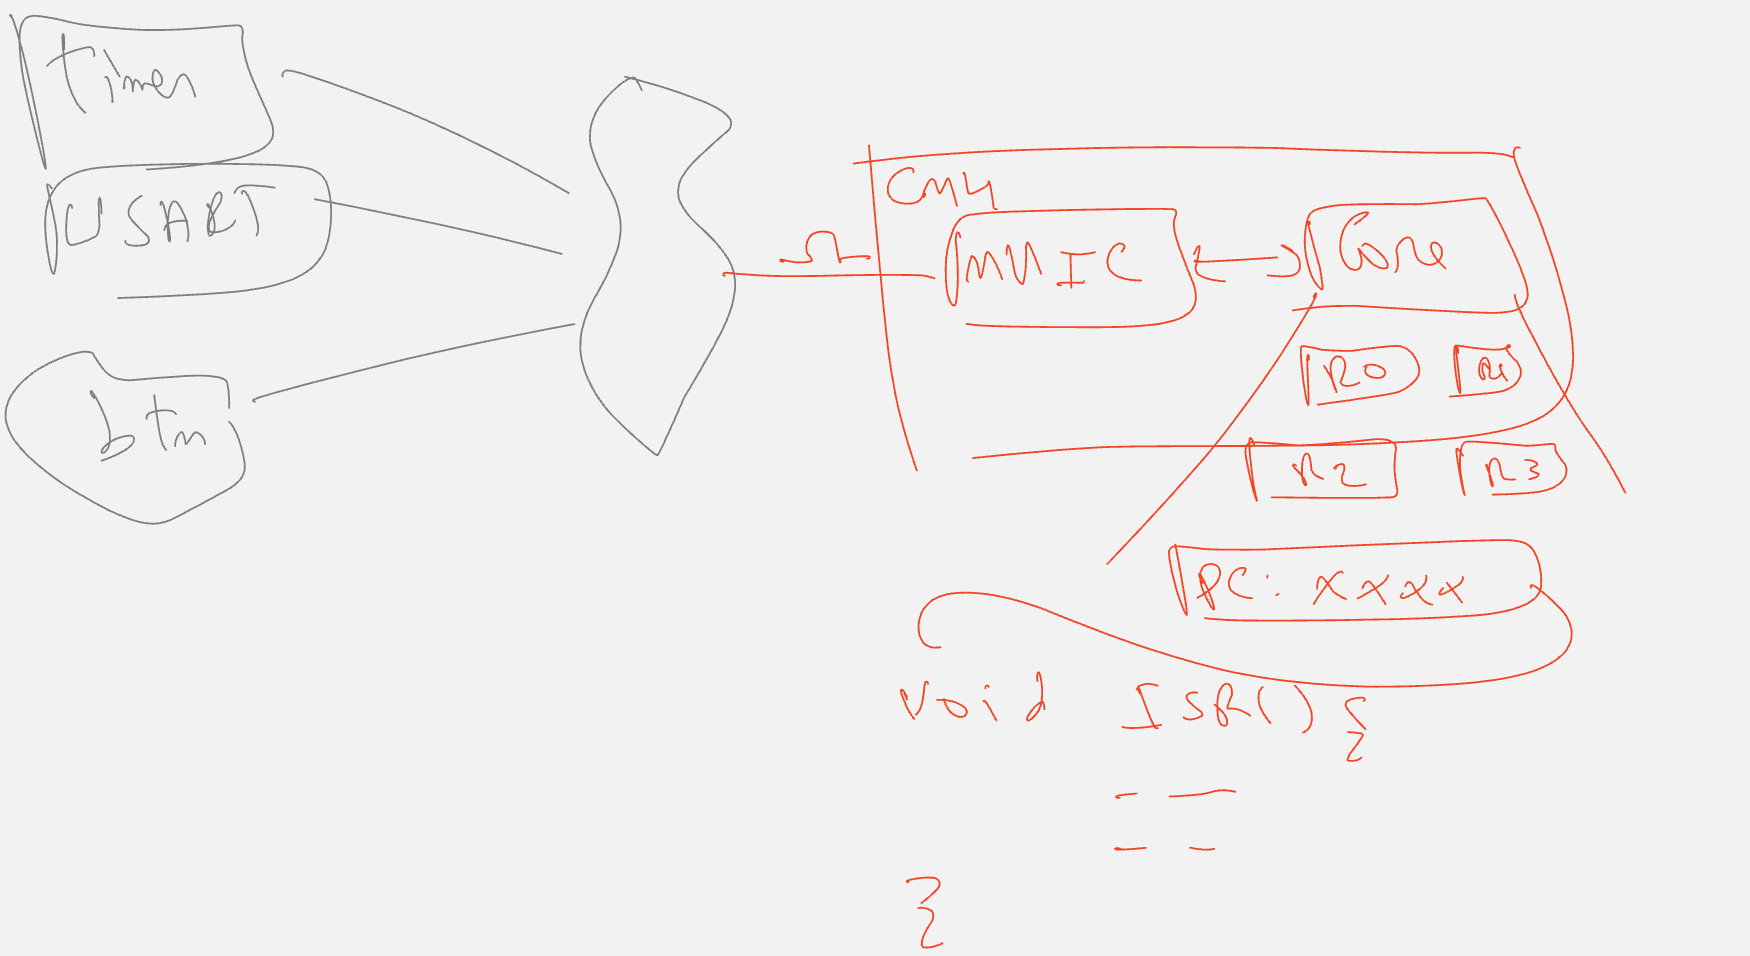 Timer
USART
btn
CM4
NVIC
Core
R0
R1
R2
R3
PC: xxxx
void ISR() {
}